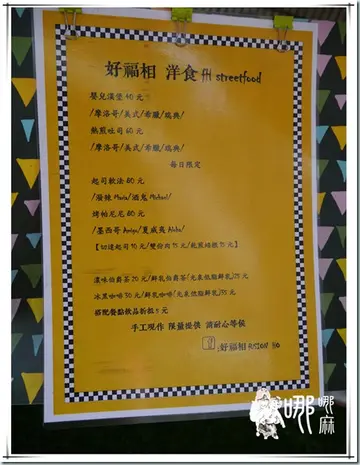 好福相 洋食卅 streetfood
嬰兒漢堡 40 元
/摩洛哥/美式/希臘/瑞典/
熱煎吐司 60 元
/摩洛哥/美式/希臘/瑞典/
每日限定
起司軟法 80 元
/潑辣 Maria/酒鬼 Michael/
烤帕尼尼 80 元
/墨西哥 Amigo/夏威夷 Aloha/
【切達起司 10 元/雙份肉 15 元/乾煎培根 15 元】
濃味伯爵茶 20 元/鮮乳伯爵茶/光泉低脂鮮乳/35 元
冰黑咖啡 30 元/鮮乳咖啡/光泉低脂鮮乳/35 元
搭配餐點飲品折扣 5 元
手工現作 限量提供 請耐心等候
好福相
哪哪麻